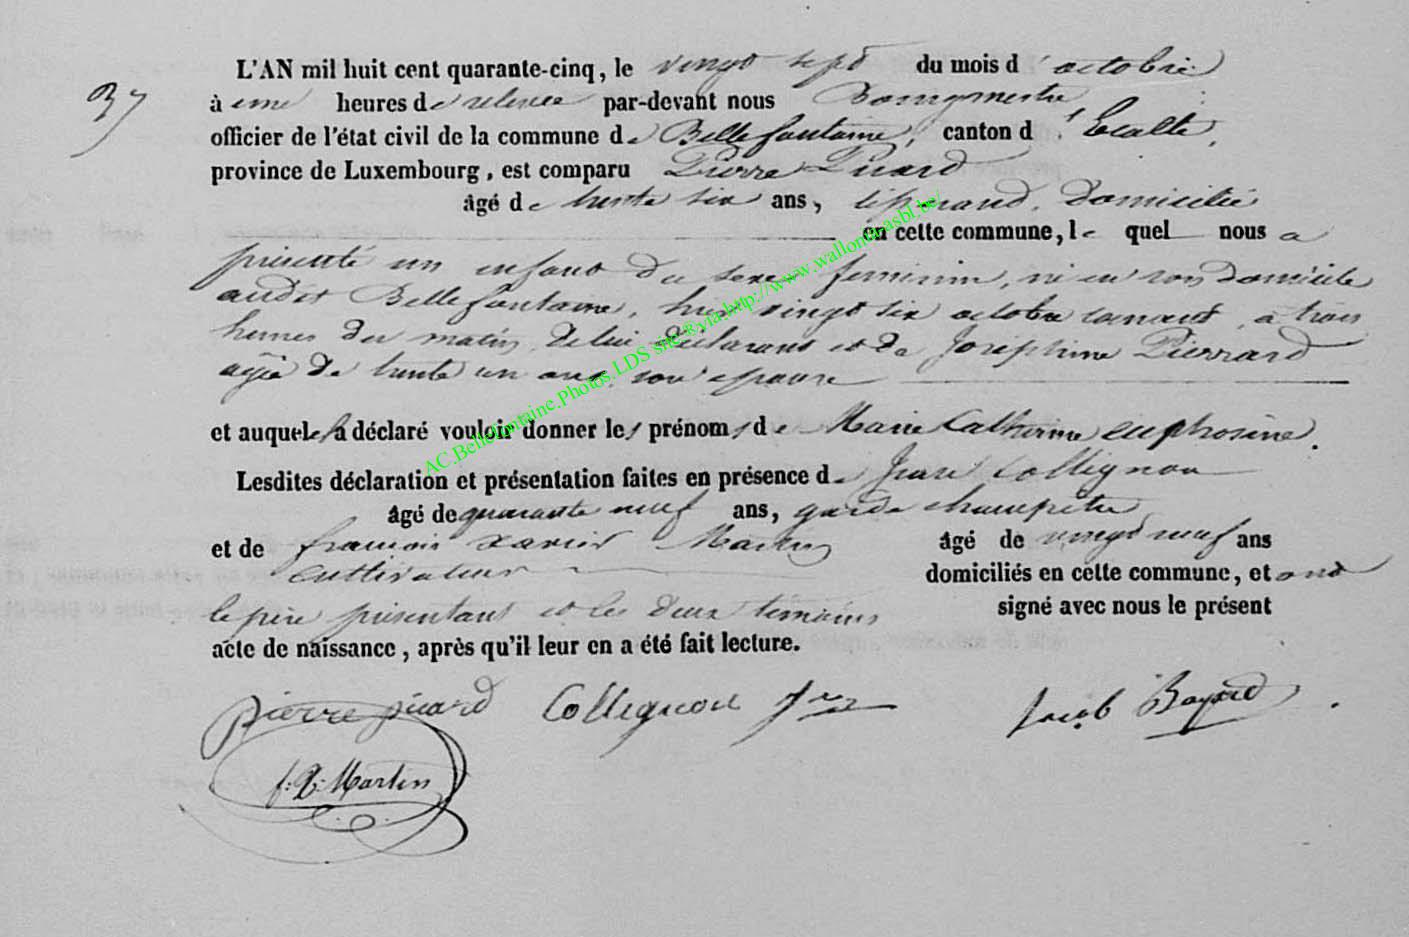 37
L'AN mil huit cent quarante-cinq, le vingt sept du mois d'octobre
à une heures de relevée par-devant nous Bourgmestre,
officier de l'état civil de la commune de Bellefontaine, canton d'Etalle,
province de Luxembourg, est comparu Pierre Piard
âgé de trente six ans, domicilié
en cette commune, lequel nous a
présenté un enfant du sexe feminin, né en son domicile
audit Bellefontaine, hier vingt six octobre courant, à trois
heures du matin, de lui déclarant et de Joséphine Pierrard
agée de trente un ans, son epouse
et auquel il a déclaré vouloir donner les prénoms de Marie Catherine euphosine.
Lesdites déclaration et présentation faites en présence de Jean Collignon
âgé de quarante neuf ans, garde champêtre
et de françois xavier Martin âgé de vingt neuf ans
cultivateur domiciliés en cette commune, et ont
le père présentant et les deux témoins signé avec nous le présent
acte de naissance, après qu'il leur en a été fait lecture.
pierre piard Collignon Jacob Bayard
f. X. Martin
AC.Bellefontaine.Photos.LDS site ®via http://www.wallonia-asbl.be/